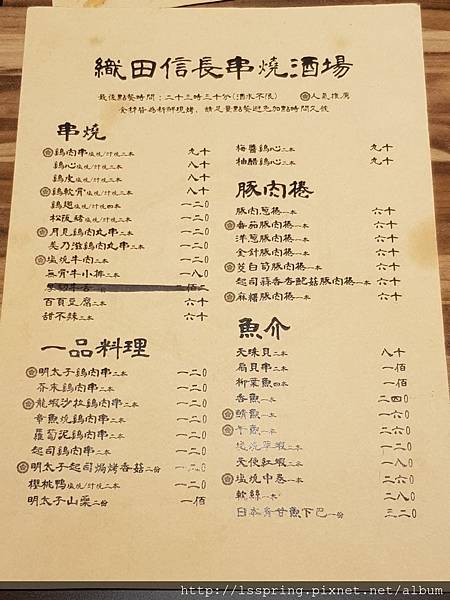 織田信長串燒酒場
最後點餐時間：二十三時三十分(酒水不限) 人氣推薦
食材皆為新鮮現烤，請足量點餐避免加點時間久候
串燒
鷄肉串鹽燒/汁燒二本 九十
鷄心鹽燒/汁燒二本 八十
鷄皮鹽燒/汁燒二本 八十
鷄軟骨鹽燒/汁燒二本 八十
鷄翅鹽燒/汁燒四本 一二0
松阪豬鹽燒/汁燒二本 一二0
月見鷄肉丸串二本 一二0
美乃滋鷄肉丸串二本 一二0
鹽燒牛肉二本 一二0
無骨牛小排二本 一八0
百頁豆腐二本 六十
甜不辣二本 六十
一品料理
明太子鷄肉串二本 一二0
芥末鷄肉串二本 一二0
龍蝦沙拉鷄肉串二本 一二0
章魚燒鷄肉串二本 一二0
蘿蔔泥鷄肉串二本 一二0
起司鷄肉串二本 一二0
明太子起司焗烤香菇二份 一二0
櫻桃鴨鹽燒/汁燒二本 一二0
明太子山藥二份 一佰
梅醬鷄心二本 九十
柚醋鷄心二本 九十
豚肉捲
豚肉蔥捲一本 六十
番茄豚肉捲一本 六十
洋蔥豚肉捲一本 六十
金針豚肉捲一本 六十
茭白筍豚肉捲一本 六十
起司蒜香杏鮑菇豚肉捲一本 六十
麻糬豚肉捲一本 六十
魚介
天味貝二本 八十
扇貝串二本 一佰
柳葉魚四本 一佰
香魚一本 二四0
鯖魚一本 一六0
午魚一本 二六0
鹽燒草蝦二本 一二0
天使紅蝦二本 一八0
鹽燒中卷一本 二六0
軟絲一本 二八0
日本青甘魚下巴一份 三二0
http://lsspring.pixnet.net/album